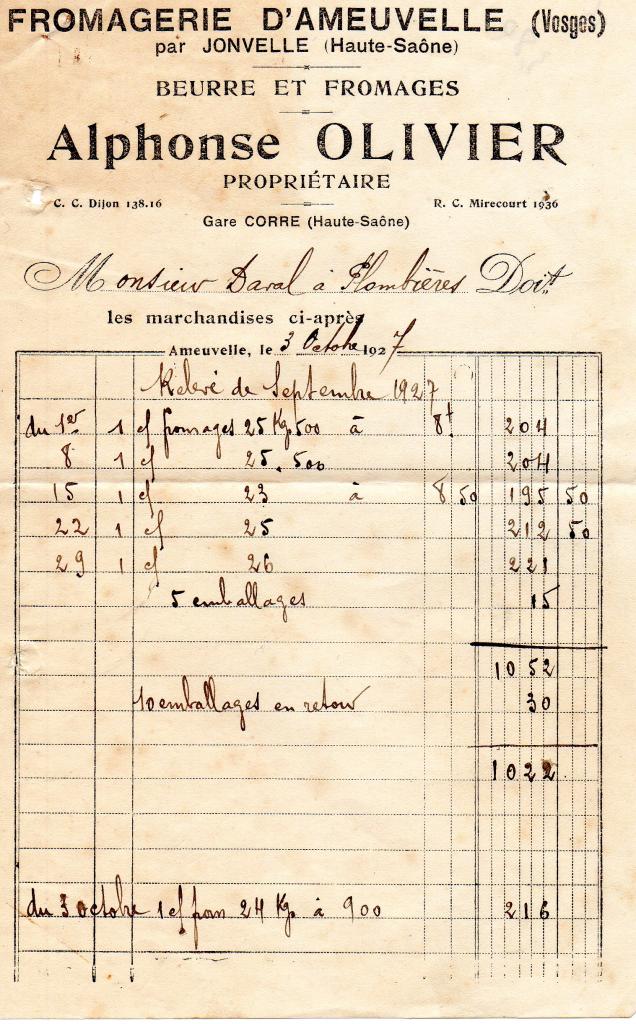 FROMAGERIE D'AMEUVELLE (Vosges)
par JONVELLE (Haute-Saône)
BEURRE ET FROMAGES
Alphonse OLIVIER
PROPRIÉTAIRE
C. C. Dijon 138.16 R. C. Mirecourt 1936
Gare CORRE (Haute-Saône)
Monsieur Daval à Plombières Doit
les marchandises ci-après
Ameuvelle, le 3 Octobre 1927
Relevé de Septembre 1927
du 1er 1 cf fromages 25 Kg 500 à 8f 204
8 1 cf 25.500 204
15 1 cf 23 à 8 50 195 50
22 1 cf 25 212 50
29 1 cf 26 221
5 emballages 15
1052
10 emballages en retour 30
1022
du 3 octobre 1 cf from 24 Kg à 900 216